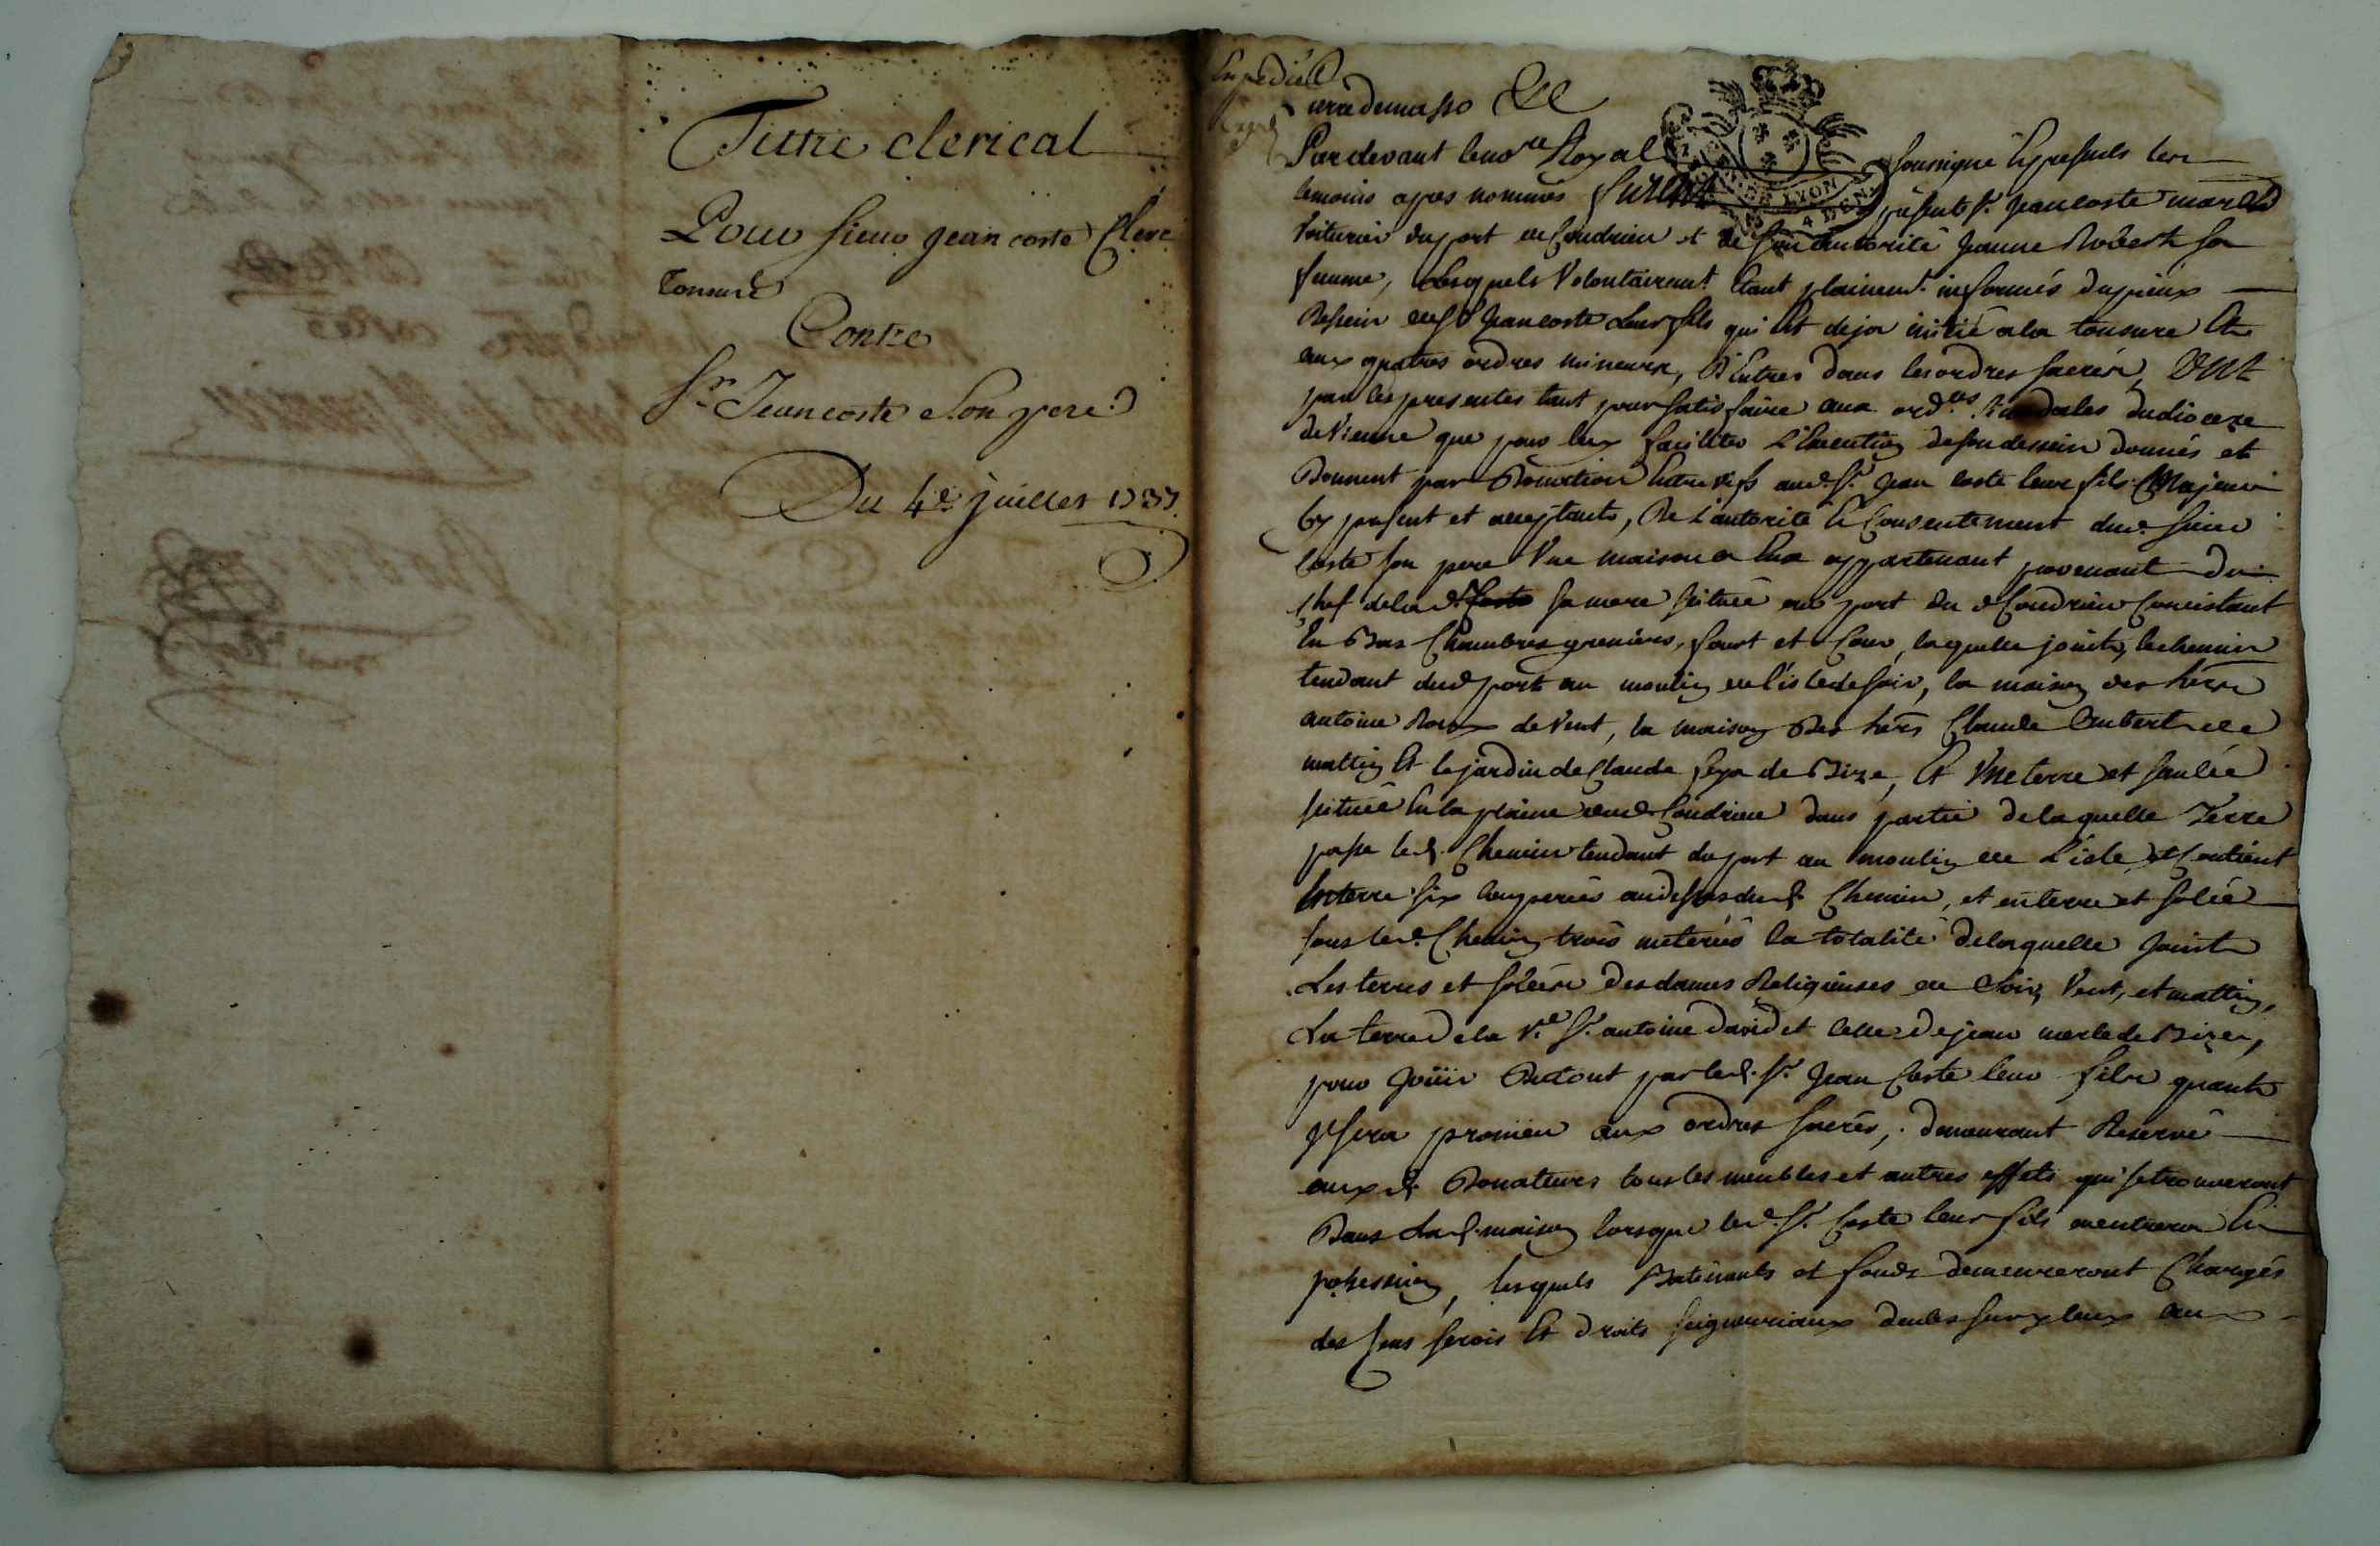 Tittre clerical
Pour sieur Jean coste Clerc
Tonsuré
Contre
Sr. Jean coste son pere
Du 4e. juillet 1737
Expedié
Pardevant le nore Royal soussigné Et presents les
temoins apres nommés furent presents sr. Jean coste march
voiturier du port de Condrieu et de son autorité Jeanne Robert sa
femme, Lesquels volontairemt. Etant plainemt. informés du pieux
Dessein dud sr Jean coste Leur fils qui Est deja initié a la tonsure Et
aux quatres ordres mineurs, D'Entrer dans les ordres sacrés, Ont
par les presentes tant pour satisfaire aux ordces. du dioceze
de Vienne que pour luy faciliter L'Execution de son dessein donnés et
Donnent par Donation Entre vifs aud. sr. Jean coste leur fils Majeur
Cy present et acceptant, De L'autorité Et Consentement dud. sieur
Coste son pere Une maison a Eux appartenant provenant du
Chef de lad. sa mere scituée au port dud Condrieu Concistant
En Bas Chambres greniers, fourt et Cour, laquelle joint, le chemin
tendant dud port au moulin de l'isle de soir, la maison des hers
antoine Roux de Vent, la maison Des hers Claude Imbert de
mattin Et le jardin de Claude de Bize, Et Une terre et saulée
scituée En la plaine dud Condrieu dans partie de laquelle Terre
passe led. Chemin tendant du port au moulin de L'isle, et Contient
la terre six couperées au dessus dud. Chemin, et en terre et solée
sous led. Chemin trois meterées la totalité de laquelle Joint
Les terres et solées des dames Religieuses de Soir, Vent, et mattin,
La terre de la Ve. sr. antoine David et Celle de jean merle de Bize,
pour Joüir Du tout par led. sr. Jean Coste leur fils quant
Il sera promeu aux ordres sacrés, demeurant Reservé
aux d. Donateurs tous les meubles et autres effets qui se trouveront
Dans lad. maison lorsque led. sr. Coste leur fils en entrera En
possession, lesquels Batiments et fonds demeureront Chargés
des Cens servis Et droits seigneuriaux deubs sur yceux aux